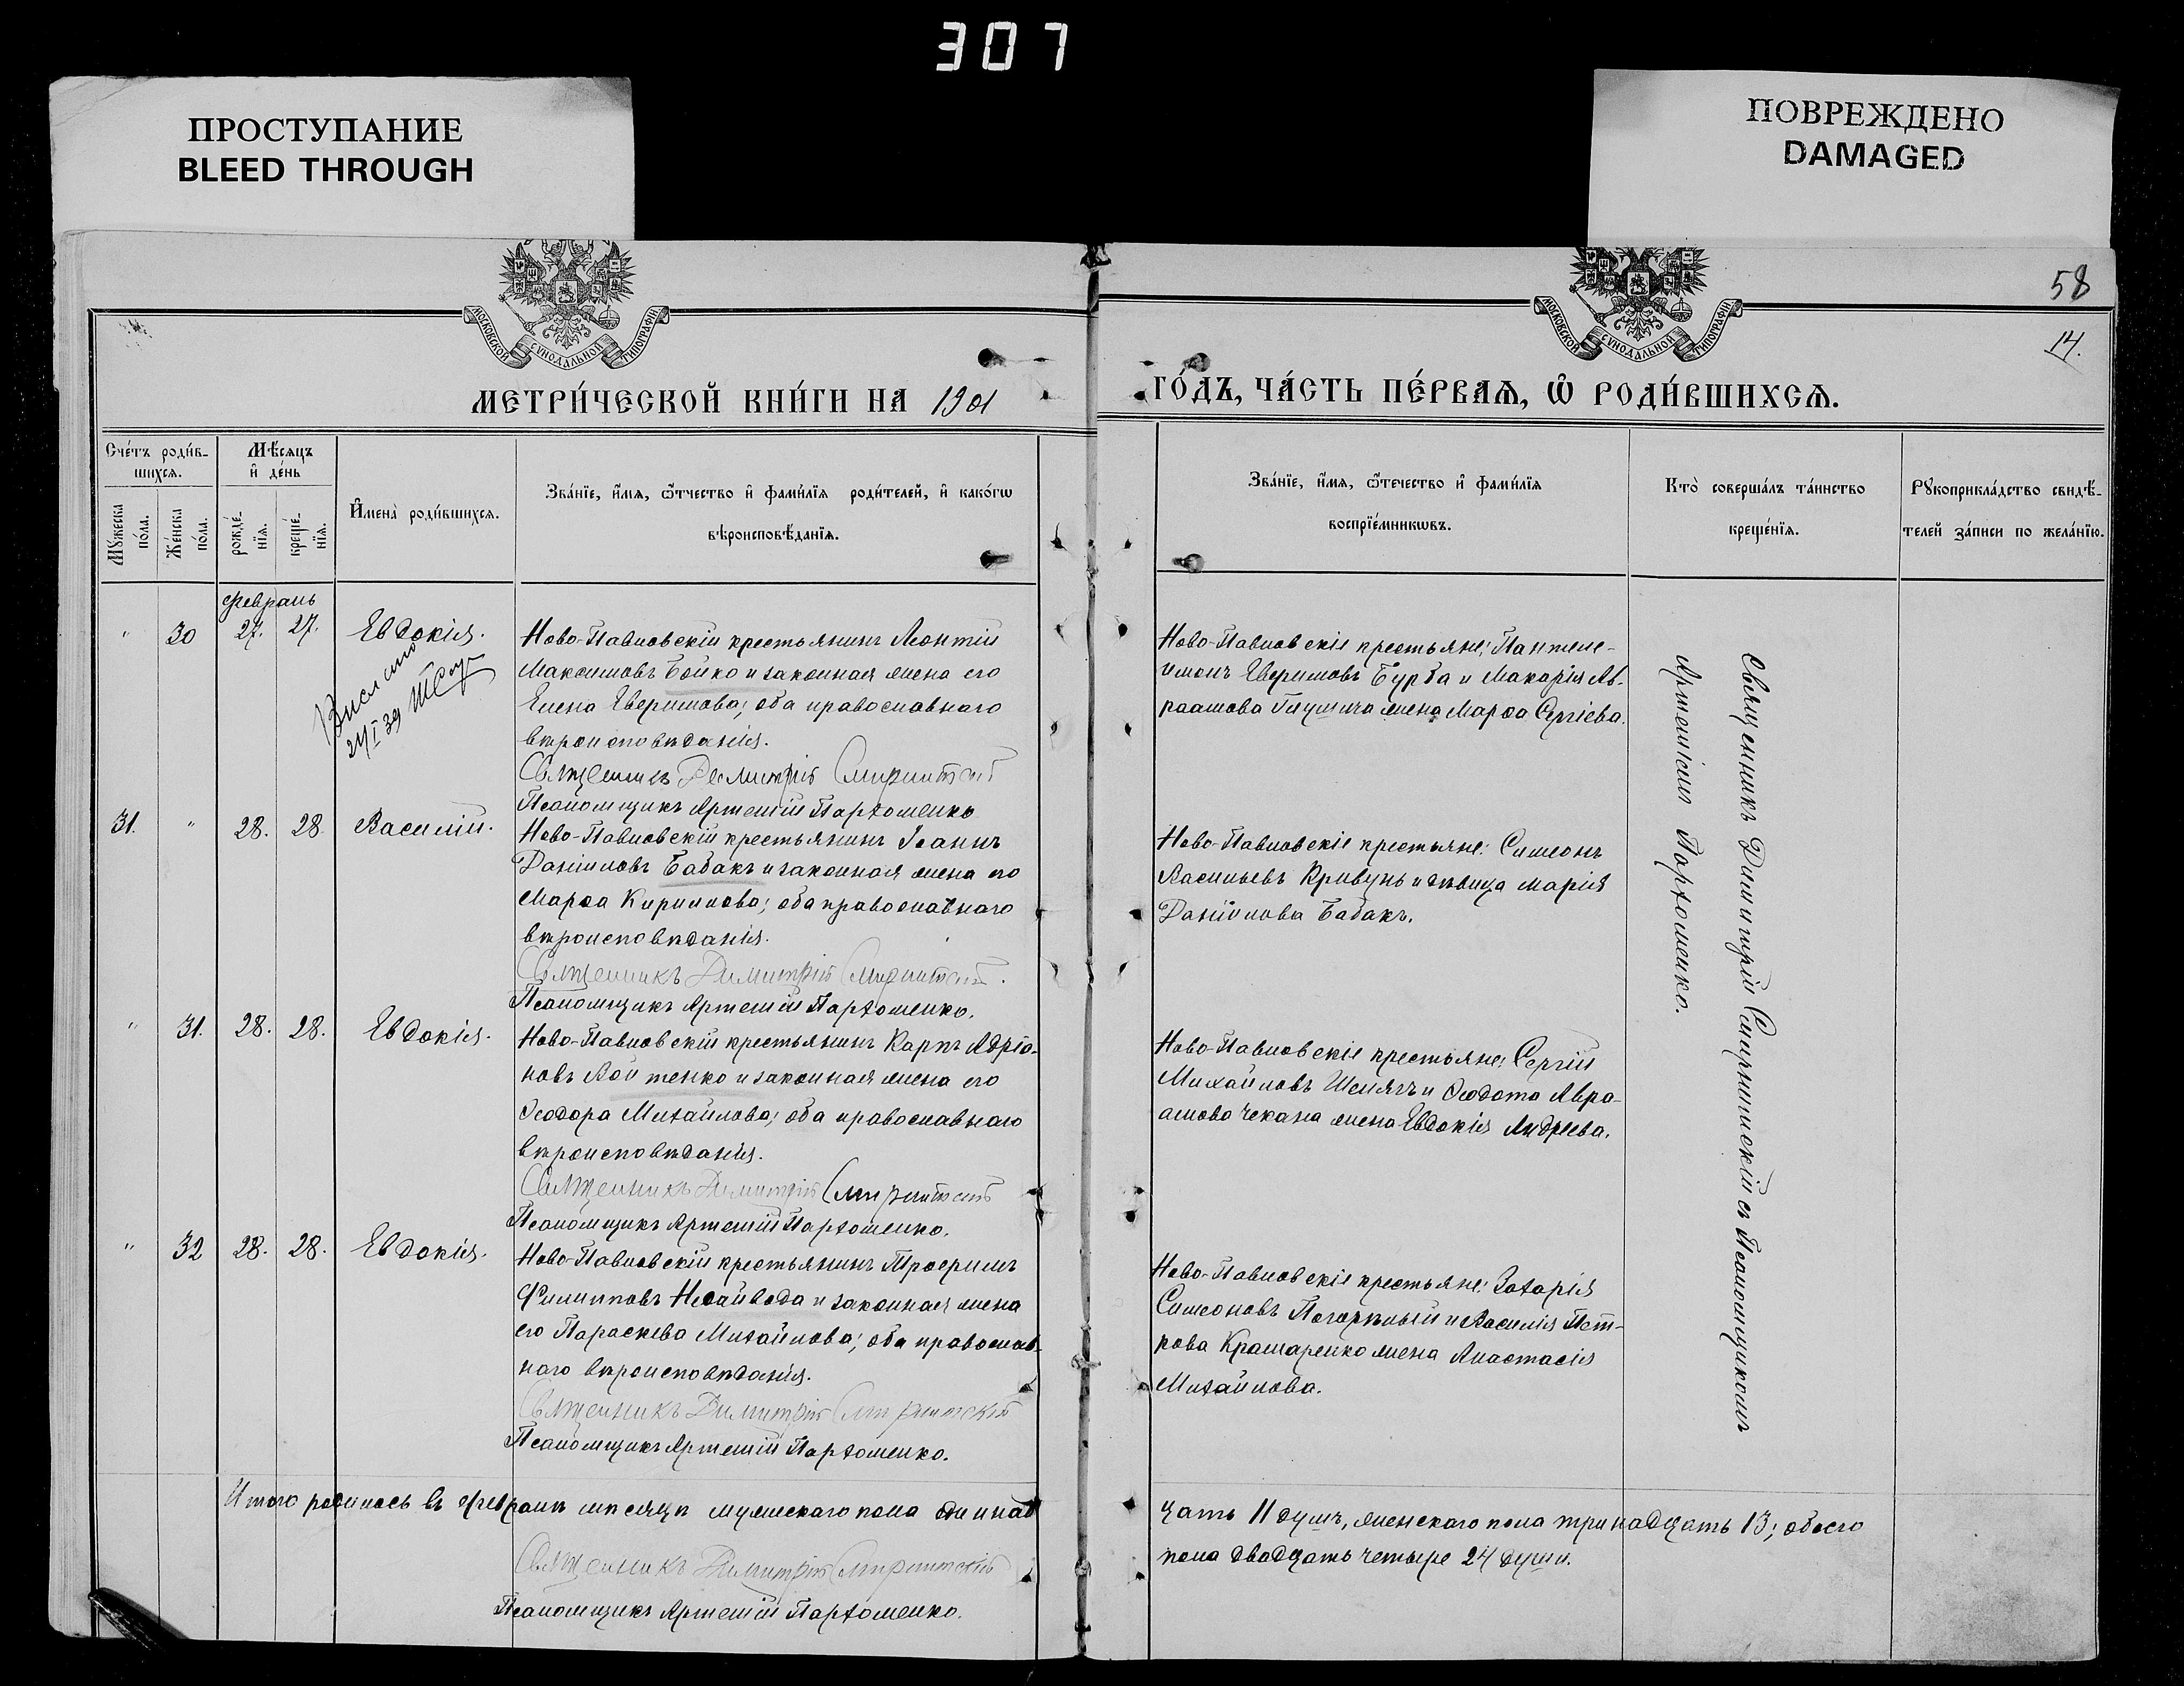 307
ПРОСТУПАНИЕ
BLEED THROUGH
ПОВРЕЖДЕНО
DAMAGED
58
14.
МОСКОВСКОЙ СУНОДАЛЬНОЙ ТИПОГРАФІИ
МОСКОВСКОЙ СУНОДАЛЬНОЙ ТИПОГРАФІИ
МЕТРИ́ЧЕСКОЙ КНИ́ГИ НА 1901
ГО́ДЪ, ЧА́СТЬ ПЕ́РВАѦ, Ѿ РОДИ́ВШИХСѦ.
Сче́тъ роди́в-
шихсѧ.
Мꙋ́жеска по́ла.
Же́нска по́ла.
Мѣ́сѧцъ
и҆ де́нь
рожде́-
нїѧ.
креще́-
нїѧ.
И҆мена̀ роди́вшихсѧ.
Зва́нїе, и҆́мѧ, ѻ҆́тчество и҆ фами́лїѧ роди́телей, и҆ како́гѡ
вѣроисповѣ́данїѧ.
Зва́нїе, и҆́мѧ, ѻ҆́течество и҆ фами́лїѧ
воспрїе́мникѡвъ.
Кто̀ соверша́лъ та́инство
креще́нїѧ.
Рꙋкоприкла́дство свидѣ́-
телей за́писи по жела́нїю.
Февраль
" 30 27. 27. Евдокія.
24/I 39
Ново-Павловскій крестьянинъ Леонтій
Максимовъ Бойко и законная жена его
Елена Евфимова; оба православнаго
вѣроисповѣданія.
Священникъ Димитрій Смирнитскій
Псаломщикъ Артемій Пархоменко
Ново-Павловскіе крестьяне: Пантеле-
имонъ Евфимовъ Бурба и Макарія Ав-
раамова жена Марѳа Сергіева.
31. " 28. 28. Василій.
Ново-Павловскій крестьянинъ Іоаннъ
Даніиловъ Бабакъ и законная жена его
Марѳа Кириллова; оба православнаго
вѣроисповѣданія.
Священникъ Димитрій Смирнитскій.
Псаломщикъ Артемій Пархоменко.
Ново-Павловскіе крестьяне: Симеонъ
Васильевъ Кривунь и дѣвица Марія
Даніилова Бабакъ.
" 31. 28. 28. Евдокія.
Ново-Павловскій крестьянинъ Карпъ Адріа-
новъ Войтенко и законная жена его
Ѳеодора Михайлова; оба православнаго
вѣроисповѣданія.
Священникъ Димитрій Смирнитскій
Псаломщикъ Артемій Пархоменко.
Ново-Павловскіе крестьяне: Сергій
Михайловъ Шелягъ и Ѳеодота Авра-
амова Чекана жена Евдокія Андреева.
" 32 28. 28. Евдокія.
Ново-Павловскій крестьянинъ Трофимъ
Филипповъ Несайвода и законная жена
его Параскева Михайлова; оба православ-
наго вѣроисповѣданія.
Священникъ Димитрій Смирнитскій
Псаломщикъ Артемій Пархоменко.
Ново-Павловскіе крестьяне: Захарія
Симеоновъ Погорѣлый и Василія Пет-
рова Крамаренко жена Анастасія
Михайлова.
Священникъ Димитрій Смирнитскій съ Псаломщикомъ
Артеміемъ Пархоменко.
Итого родилось въ февралѣ мѣсяцѣ мужескаго пола одиннад
цать 11 душъ, женскаго пола тринадцать 13; обоего
пола двадцать четыре 24 души.
Священникъ Димитрій Смирнитскій
Псаломщикъ Артемій Пархоменко.